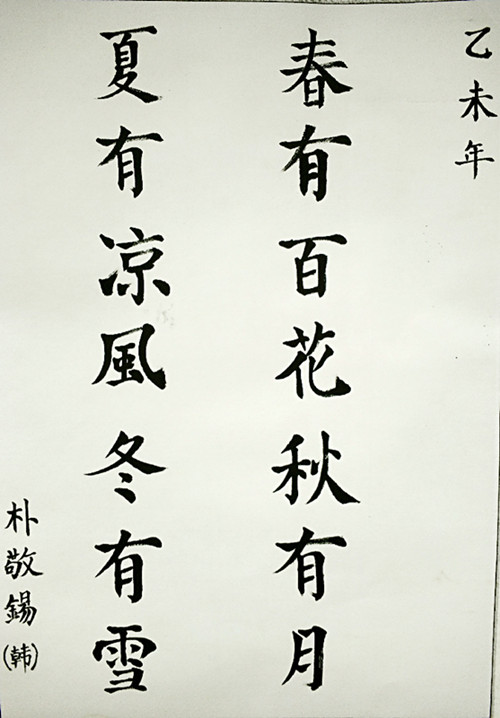 乙未年
春有百花秋有月
夏有凉風冬有雪
朴敬錫(韩)